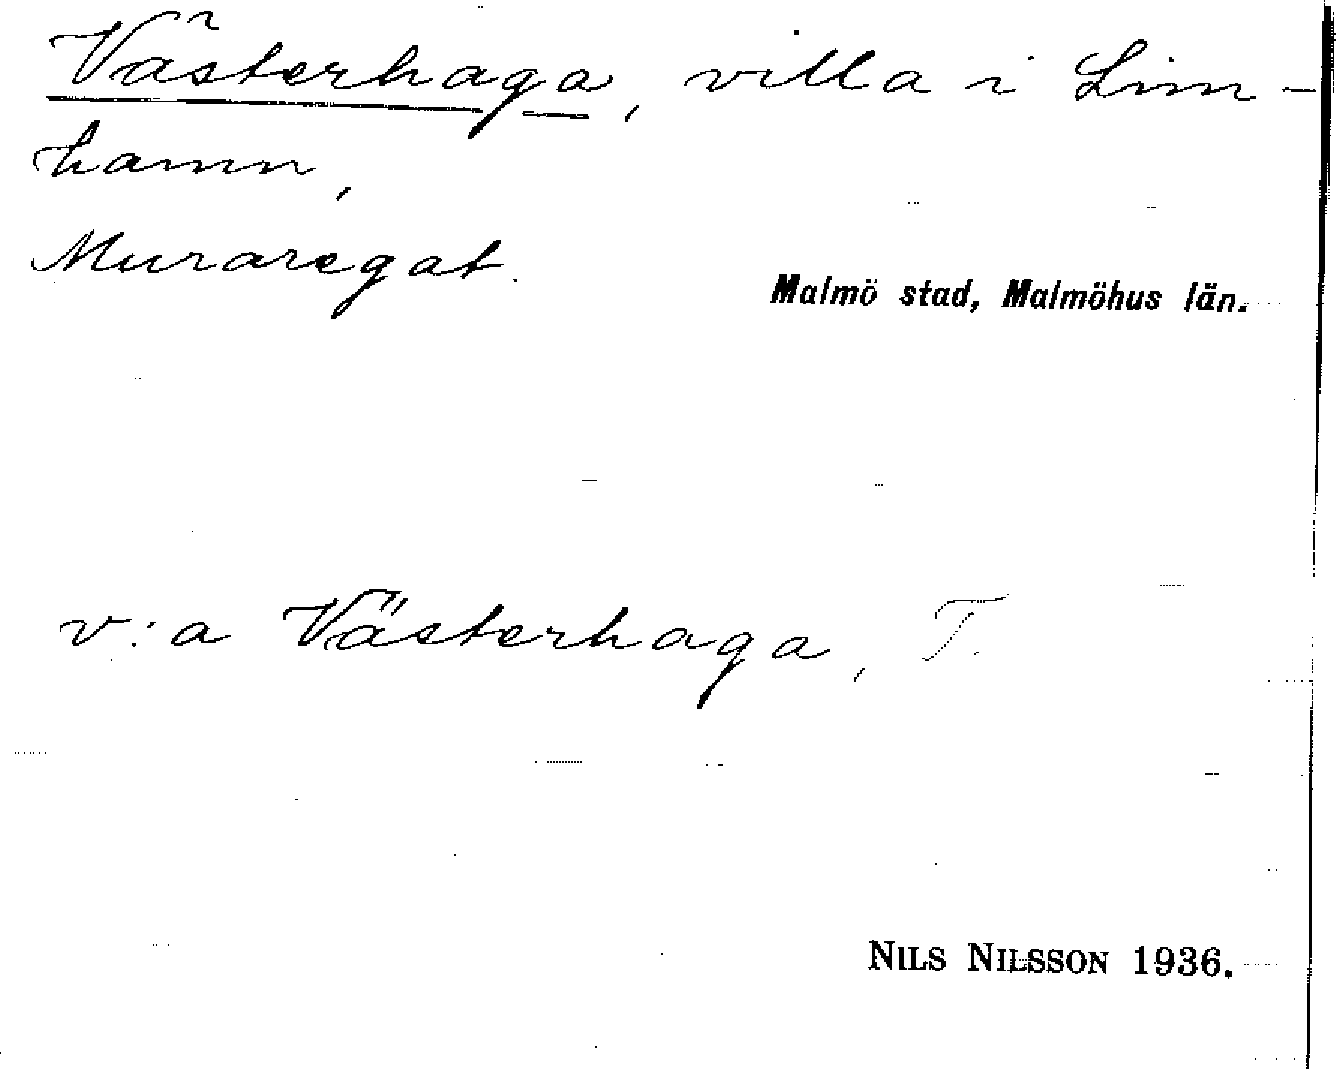 Västerhaga, villa i Lim-
hamn,
Muraregat.
Malmö stad, Malmöhus län.
v:a Västerhaga, T.
NILS NILSSON 1936.